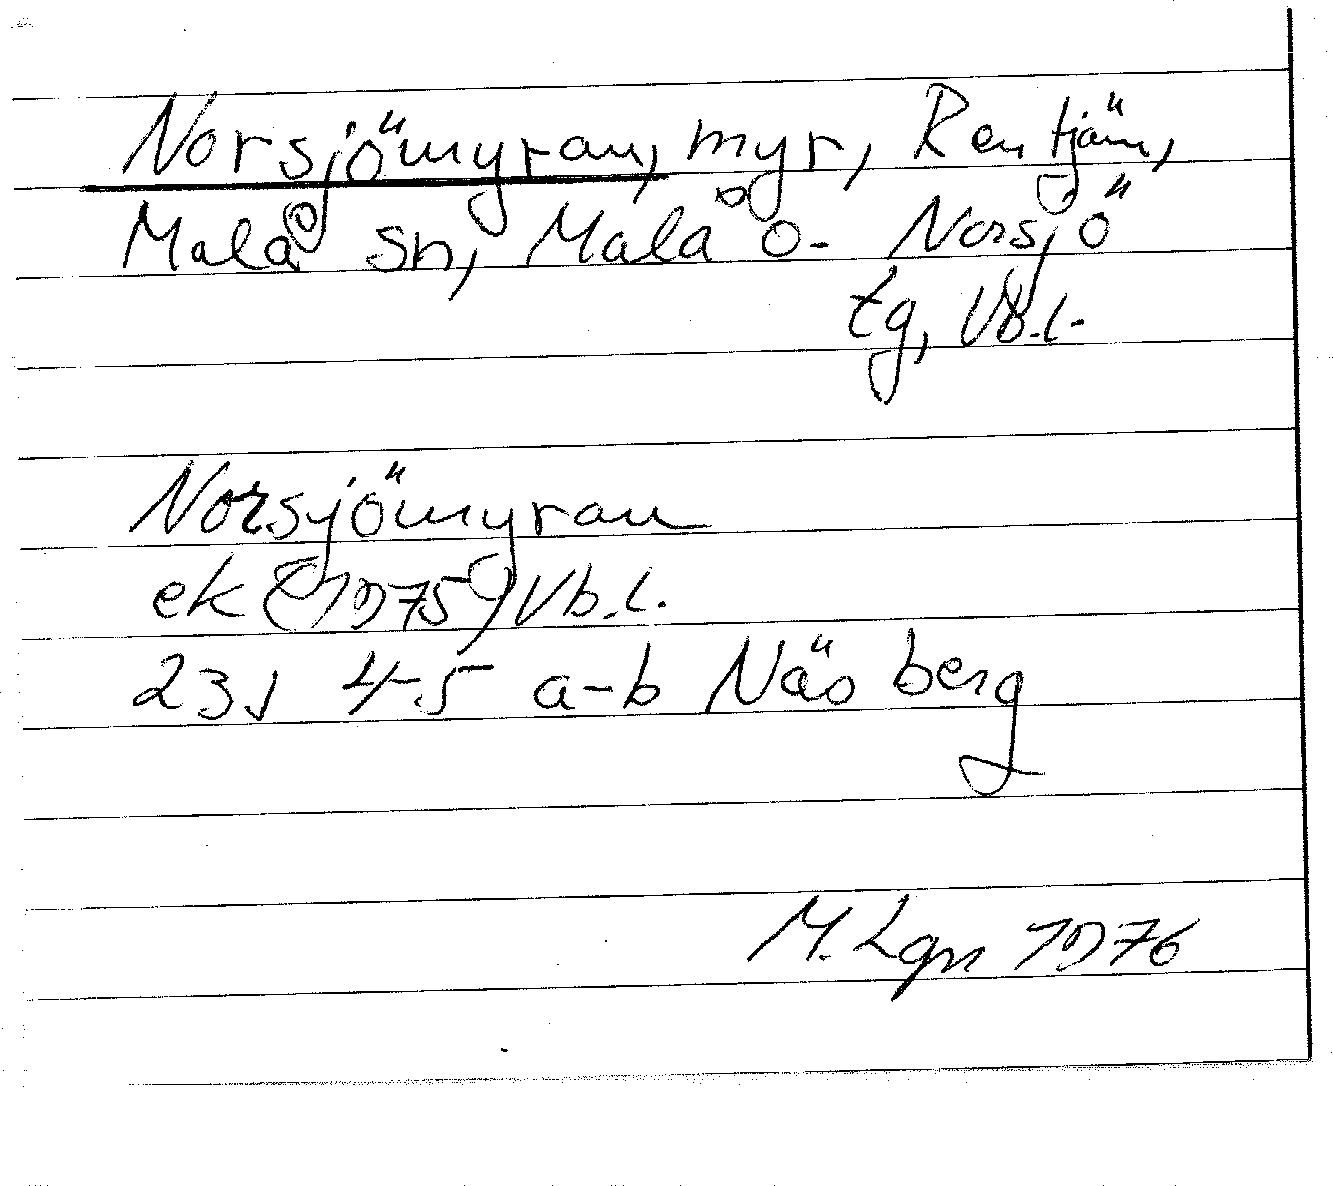 Norsjömyran, myr, Rentjärn,
Malå sn, Malå o. Norsjö
tg, Vb.l.
Norsjömyran
ek (1975) Vb.l.
23J 4-5 a-b Näsberg
M. Lgn 1976